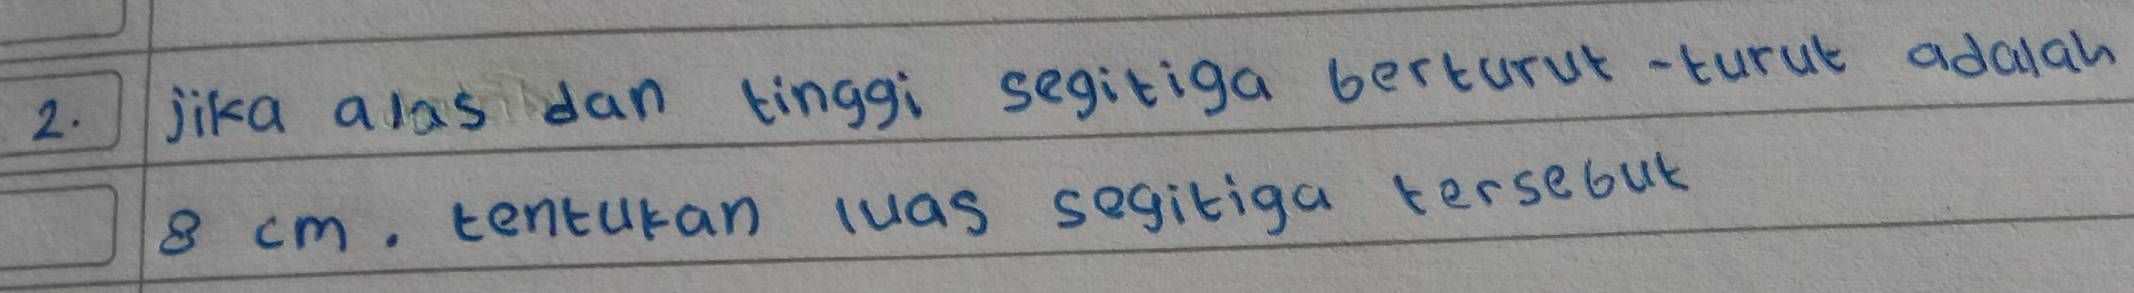 2. jika alas dan tinggi segitiga berturut-turut adalah
8 cm. tentukan luas segitiga tersebut